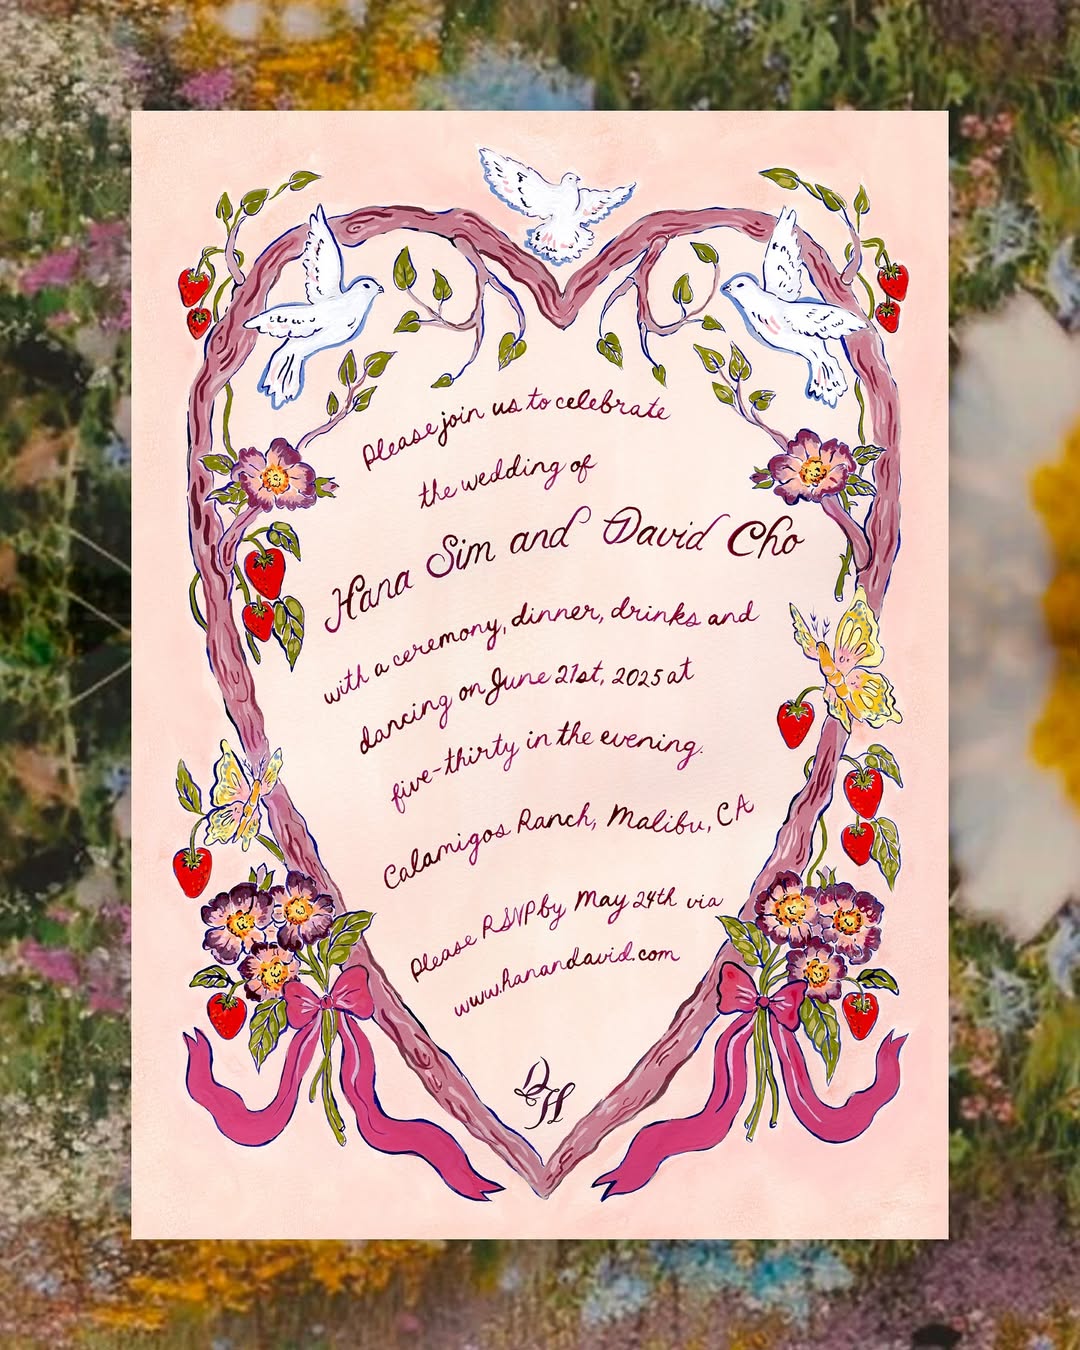 Please join us to celebrate
the wedding of
Hana Sim and David Cho
with a ceremony, dinner, drinks and
dancing on June 21st, 2025 at
five-thirty in the evening.
Calamigos Ranch, Malibu, CA
Please RSVP by May 24th via
www.hanandavid.com
DH